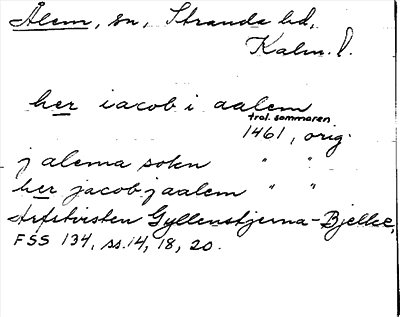 Ålem, sn, Stranda hd,
Kalm. l.
her iacob i aalem
trol. sommaren
1461, orig.
j alema sokn " "
her jacob j aalem " "
Arfstvisten Gyllenstjerna-Bjelke,
FSS 134, ss. 14, 18, 20.